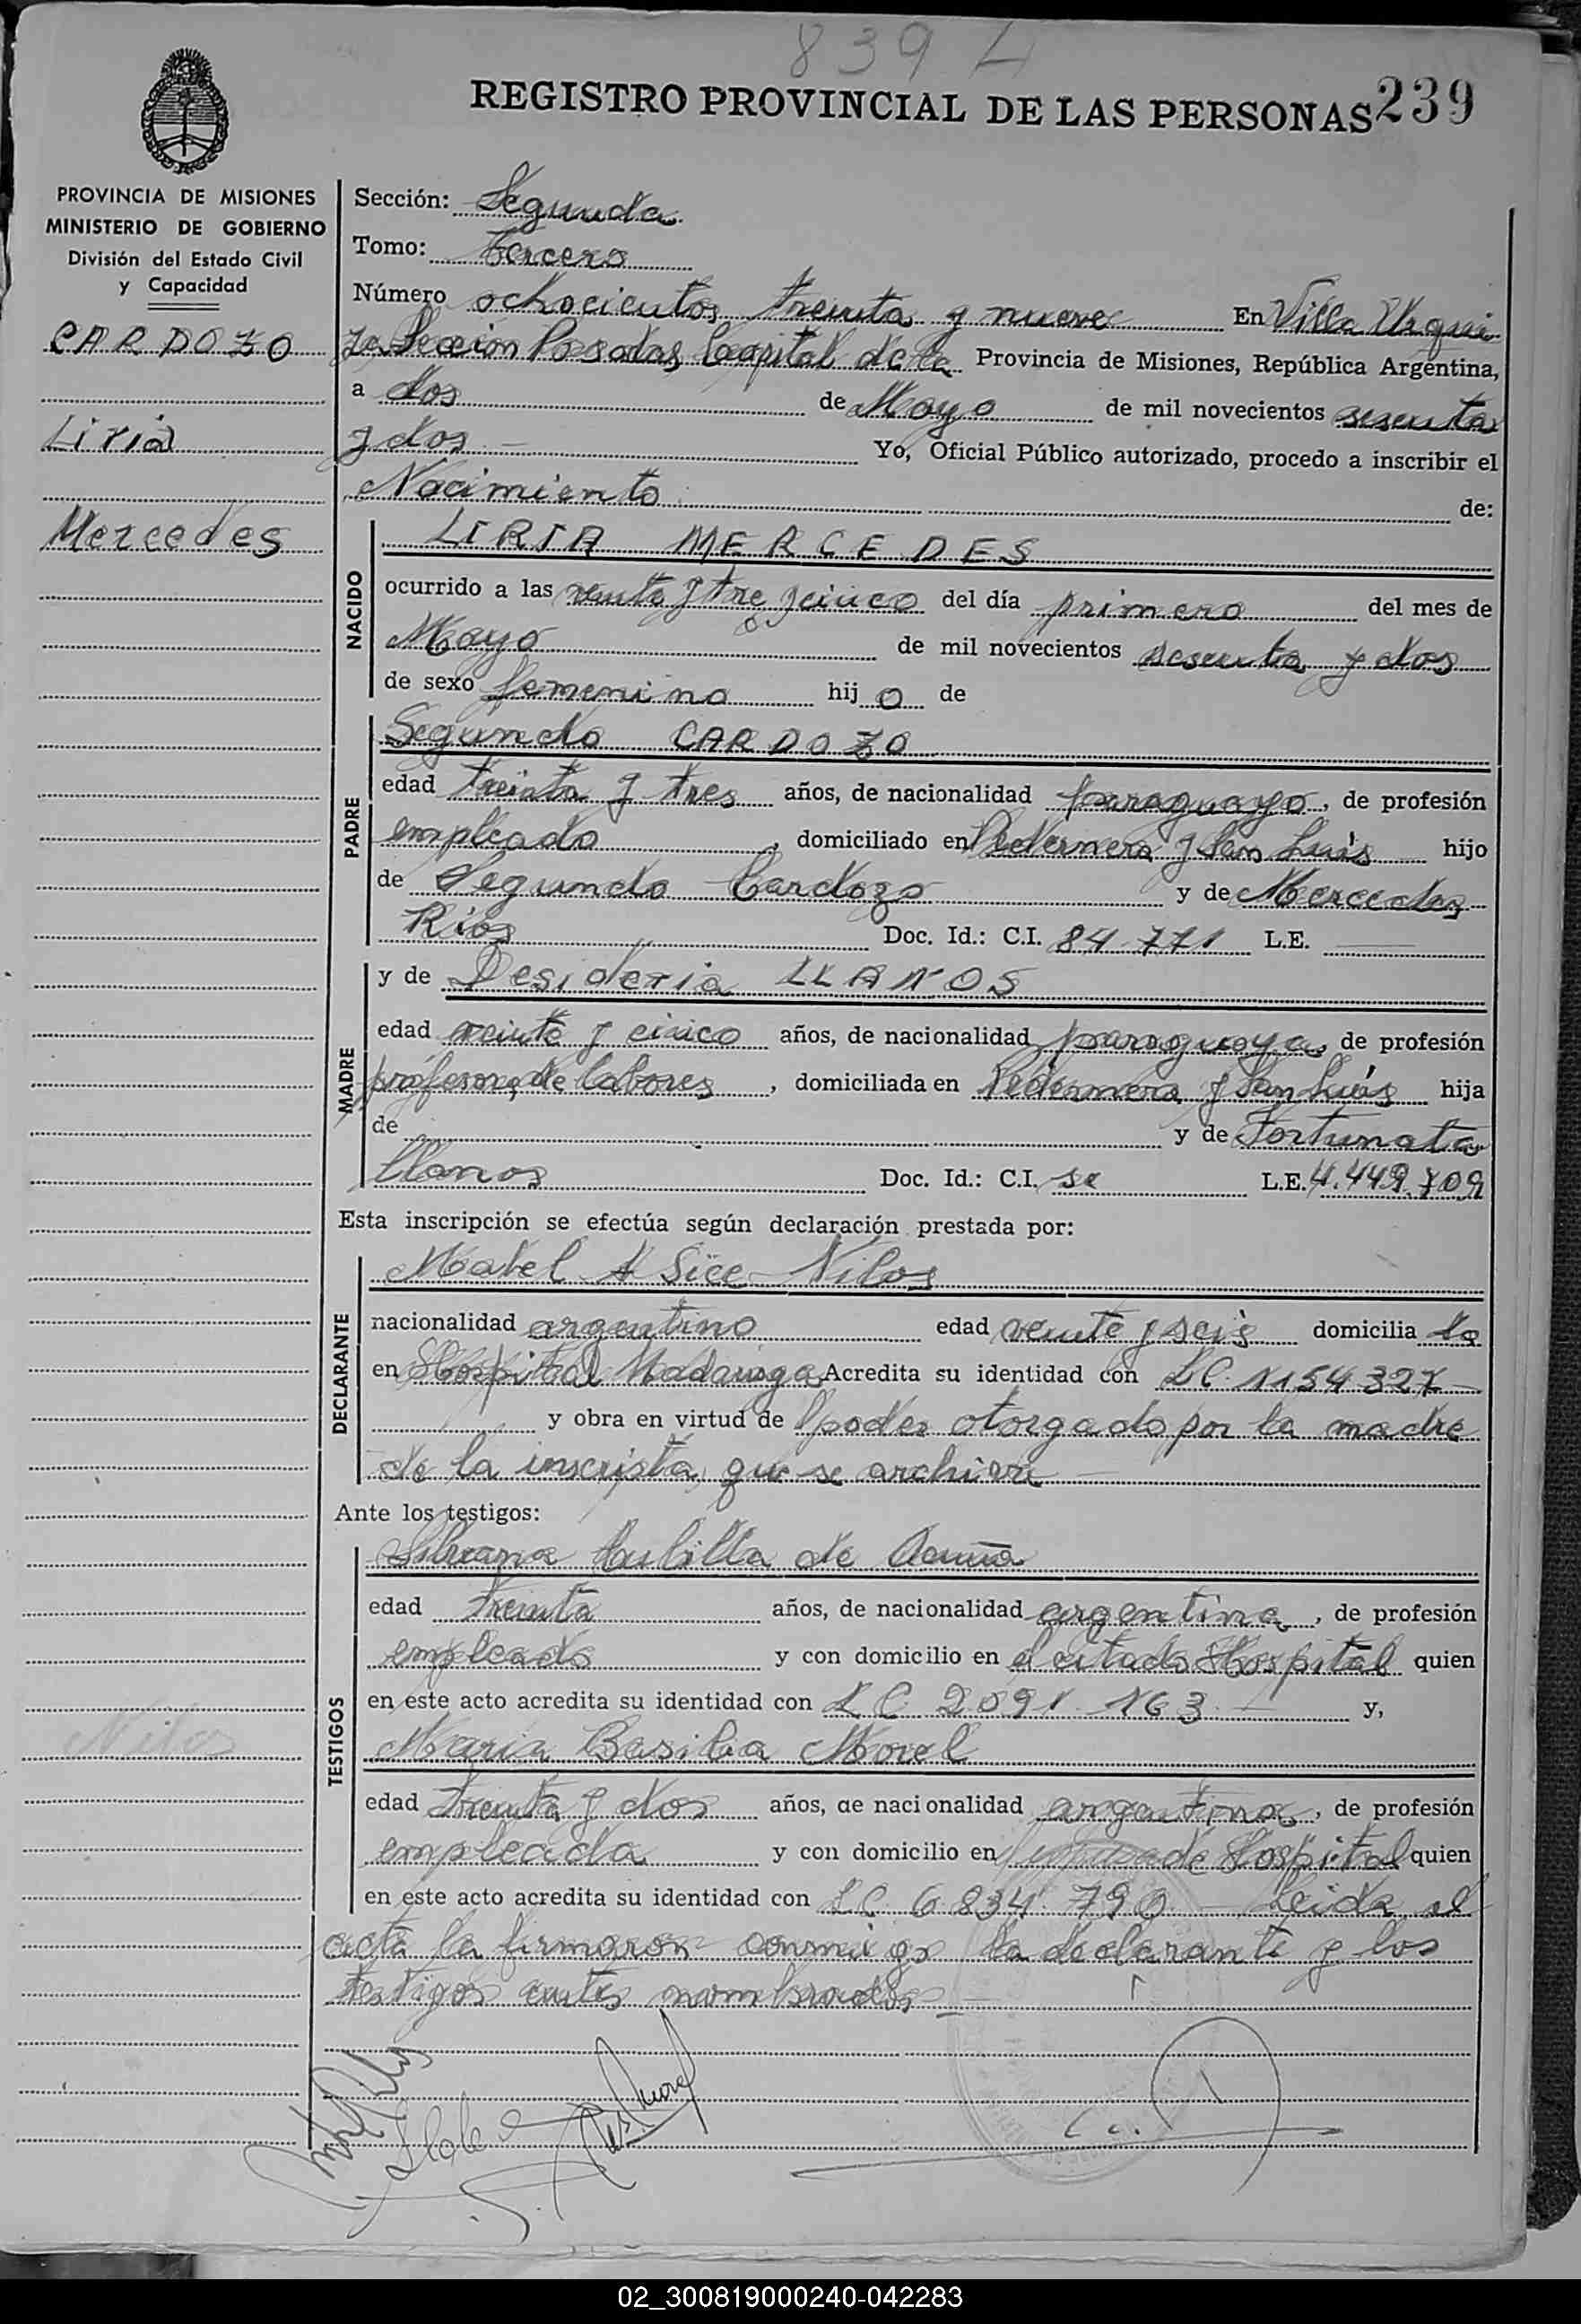 839 L
REGISTRO PROVINCIAL DE LAS PERSONAS 239
PROVINCIA DE MISIONES
MINISTERIO DE GOBIERNO
División del Estado Civil
y Capacidad
CARDOZO
Liria
Mercedes
Sección: Segunda
Tomo: tercero
Número ochocientos treinta y nueve En Villa Urqui
za Sección Posadas, Capital de la Provincia de Misiones, República Argentina,
a dos de Mayo de mil novecientos sesenta
y dos Yo, Oficial Público autorizado, procedo a inscribir el
Nacimiento de:
NACIDO
LIRIA MERCEDES
ocurrido a las veinte y tres y cinco del día primero del mes de
Mayo de mil novecientos sesenta y dos
de sexo femenino hij o de
PADRE
Segundo CARDOZO
edad treinta y tres años, de nacionalidad paraguayo, de profesión
empleado, domiciliado en Pedernera y San Luis hijo
de Segundo Cardozo y de Mercedes
Ríos Doc. Id.: C.I. 84.771 L.E.
MADRE
y de Desideria LLANOS
edad veinte y cinco años, de nacionalidad paraguaya, de profesión
de labores, domiciliada en Pedernera y San Luis hija
de y de Fortunata
Llanos Doc. Id.: C.I. L.E. 4.449.709
Esta inscripción se efectúa según declaración prestada por:
DECLARANTE
Mabel Nilos
nacionalidad argentino edad veinte y seis domicilia da
en Hospital Madariaga Acredita su identidad con LC 1154327
y obra en virtud de poder otorgado por la madre
de la inscripta, que se archiva
Ante los testigos:
TESTIGOS
Silveana Cubilla de Acuña
edad treinta años, de nacionalidad argentina, de profesión
empleada y con domicilio en el citado Hospital quien
en este acto acredita su identidad con LC 2091.163 y,
Nilos
Maria Basilia Morel
edad treinta y dos años, de nacionalidad argentina, de profesión
empleada y con domicilio en Hospital quien
en este acto acredita su identidad con LC 6.834.790 Leida el
acta la firmaron conmigo la declarante y los
testigos antes nombrados
02_300819000240-042283